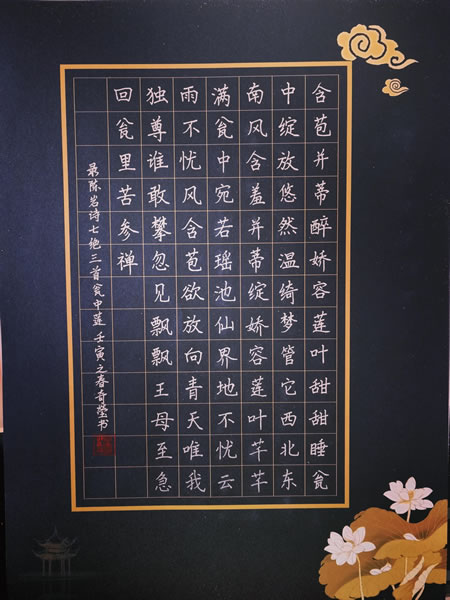 含苞并蒂醉娇容莲叶甜甜睡瓮
中绽放悠然温绮梦管它西北东
南风含羞并蒂绽娇容莲叶芊芊
满瓮中宛若瑶池仙界地不忧云
雨不忧风含苞欲放向青天唯我
独尊谁敢攀忽见飘飘王母至急
回瓮里苦参禅
录陈岩诗七绝三首瓮中莲壬寅之春奇莹书